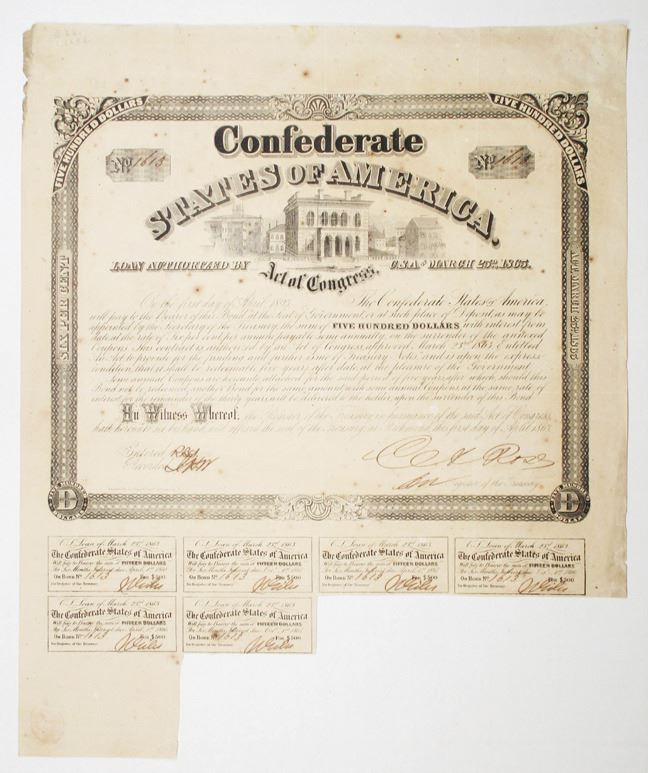 FIVE HUNDRED DOLLARS
FIVE HUNDRED DOLLARS
Confederate
No. 1613
No. 1613
STATES OF AMERICA.
LOAN AUTHORIZED BY
Act of Congress,
C.S.A. OF MARCH 23RD, 1863.
SIX PER CENT
On the first day of April 1893, The Confederate States of America
will pay to the Bearer of this Bond, at the Seat of Government, or at such place of Deposit as may be
appointed by the Secretary of the Treasury, the sum of FIVE HUNDRED DOLLARS with interest from
date at the rate of Six per cent per annum payable semi annually, on the surrender of the annexed
Coupons. This contract is authorized by an Act of Congress approved March 23rd 1863, Entitled
An Act to provide for the funding and further Issue of Treasury Notes, and is upon the express
condition, that it shall be redeemable five years after date, at the pleasure of the Government.
Semi annual Coupons are hereunto attached for the said period of five years after which should this
Bond not be redeemed another Bond for the same amount with semi annual Coupons at the same rate of
interest for the remainder of the thirty years will be delivered to the holder upon the surrender of this Bond
In Witness Whereof, the Register of the Treasury in pursuance of the said Act of Congress,
hath hereunto set his hand and affixed the seal of the Treasury, at Richmond, the first day of April 1863.
Entered
Recorded
C. A. Rose
Register of the Treasury
D
D
C.S. Loan of March 23rd 1863
The Confederate States of America
Will pay to Bearer the sum of FIFTEEN DOLLARS
On Bond No. 1613 For $500
For Register of the Treasury
C.S. Loan of March 23rd 1863
The Confederate States of America
Will pay to Bearer the sum of FIFTEEN DOLLARS
On Bond No. 1613 For $500
For Register of the Treasury
C.S. Loan of March 23rd 1863
The Confederate States of America
Will pay to Bearer the sum of FIFTEEN DOLLARS
On Bond No. 1613 For $500
For Register of the Treasury
C.S. Loan of March 23rd 1863
The Confederate States of America
Will pay to Bearer the sum of FIFTEEN DOLLARS
On Bond No. 1613 For $500
For Register of the Treasury
C.S. Loan of March 23rd 1863
The Confederate States of America
Will pay to Bearer the sum of FIFTEEN DOLLARS
On Bond No. 1613 For $500
For Register of the Treasury
C.S. Loan of March 23rd 1863
The Confederate States of America
Will pay to Bearer the sum of FIFTEEN DOLLARS
On Bond No. 1613 For $500
For Register of the Treasury